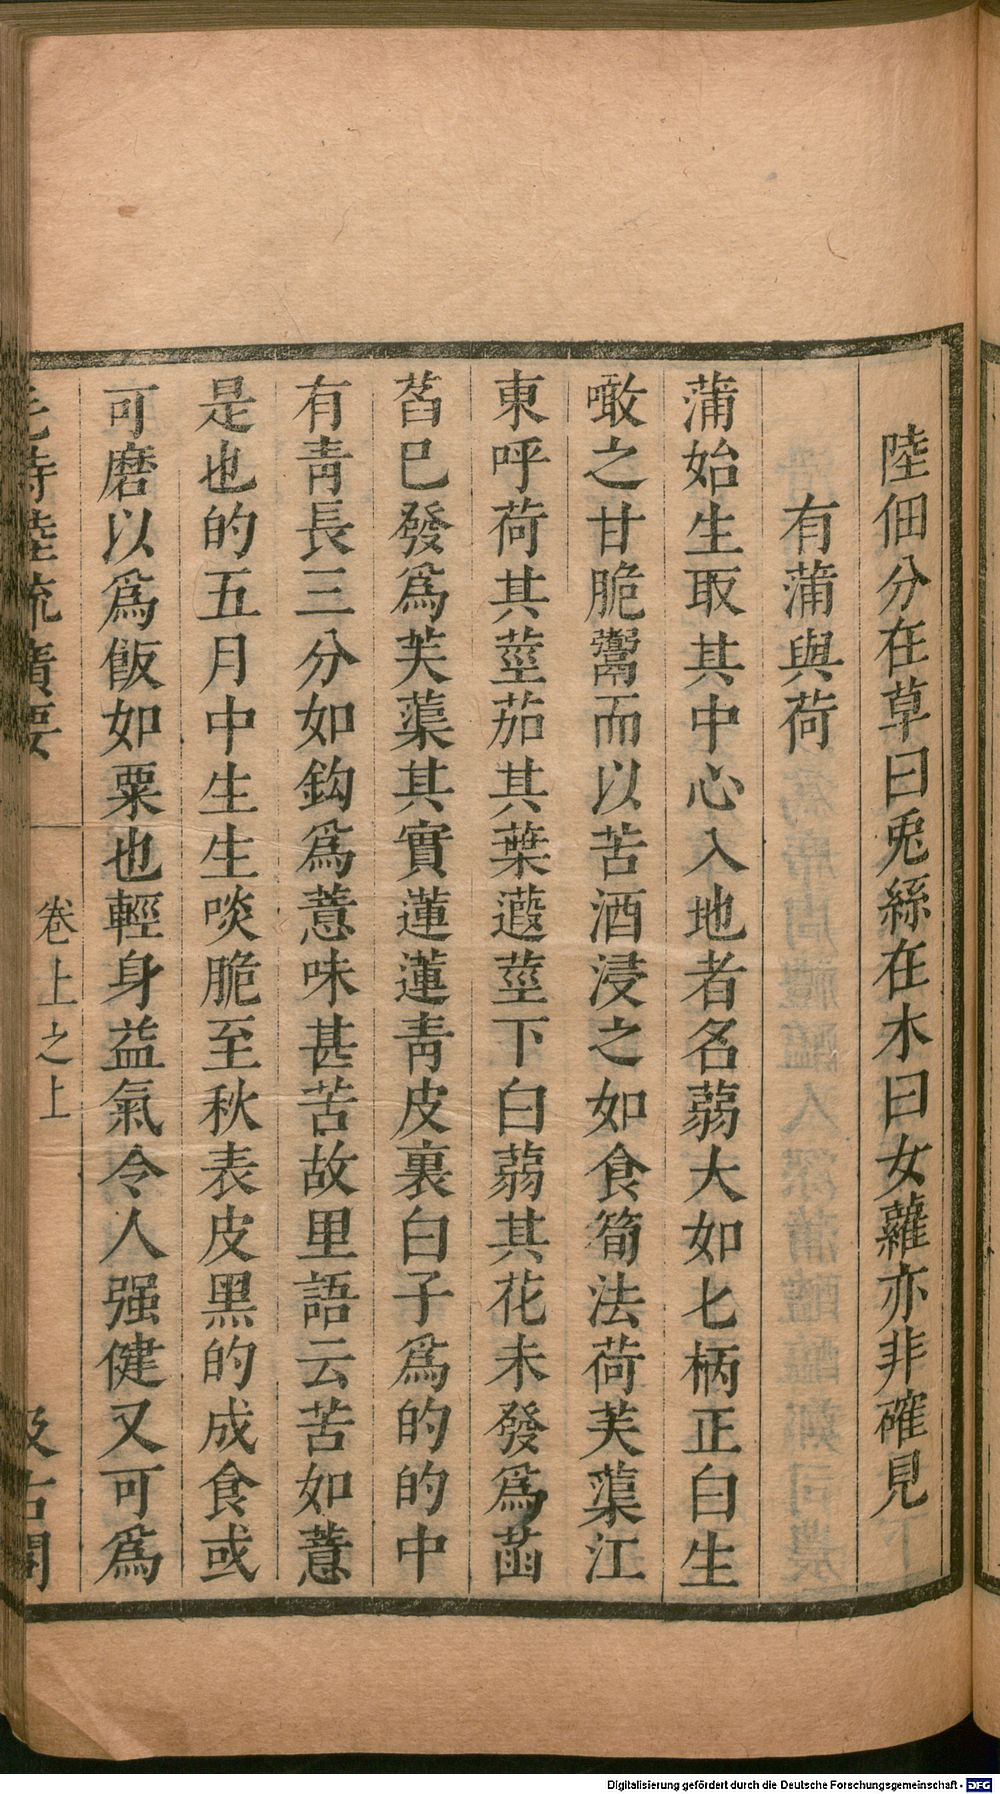 陸佃分在草曰兎絲在木曰女蘿亦非確見
有蒲與荷
蒲始生取其中心入地者名蒻大如匕柄正白生
噉之甘脆鬻而以苦酒浸之如食筍法荷芙蕖江
東呼荷其莖茄其葉蕸莖下白蒻其花未發爲菡
萏巳發爲芙蕖其實蓮蓮青皮裏白子爲的的中
有青長三分如鈎爲薏味甚苦故里語云苦如薏
是也的五月中生生啖脆至秋表皮黑的成食或
可磨以爲飯如粟也輕身益氣令人强健又可爲
毛詩陸疏廣要
卷上之上
汲古閣
Digitalisierung gefördert durch die Deutsche Forschungsgemeinschaft - DFG